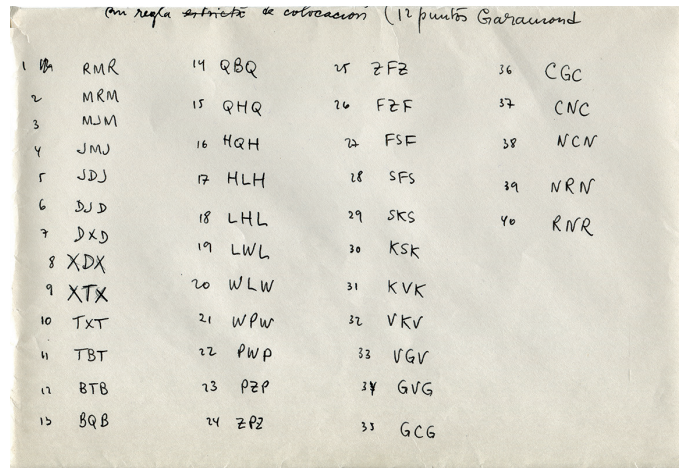 con regla estricta de colocación (12 puntos Garamond
1 RMR
2 MRM
3 MJM
4 JMJ
5 JDJ
6 DJD
7 DXD
8 XDX
9 XTX
10 TXT
11 TBT
12 BTB
13 BQB
14 QBQ
15 QHQ
16 HQH
17 HLH
18 LHL
19 LWL
20 WLW
21 WPW
22 PWP
23 PZP
24 ZPZ
25 ZFZ
26 FZF
27 FSF
28 SFS
29 SKS
30 KSK
31 KVK
32 VKV
33 VGV
34 GVG
35 GCG
36 CGC
37 CNC
38 NCN
39 NRN
40 RNR